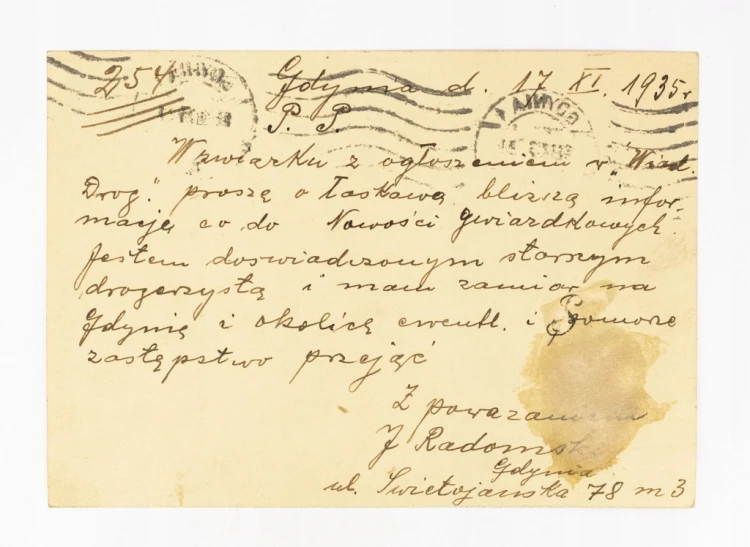 254
Gdynia d. 17 XI. 1935 r
P. P.
W zwiarku z ogłoszeniem w „Wiad.
Drog." proszę o łaskawą bliższą infor-
mację co do Nowości gwiazdkowych.
Jestem doswiadczonym starszym
drogerzystą i mam zamiar na
Gdynię i okolicę ewentl. i Pomorze
zastępstwo przejąć
Z powazaniem
J Radomski
Gdynia
ul. Swietojanska 78 m 3